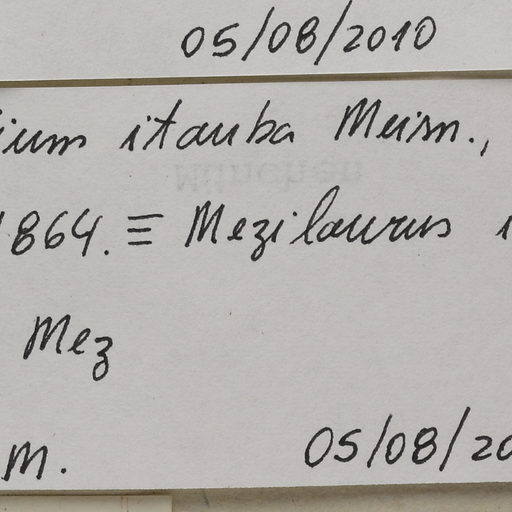 05/08/2010
ium itauba Meisn.,
1864. ≡ Mezilaurus i
Mez
M.
05/08/20